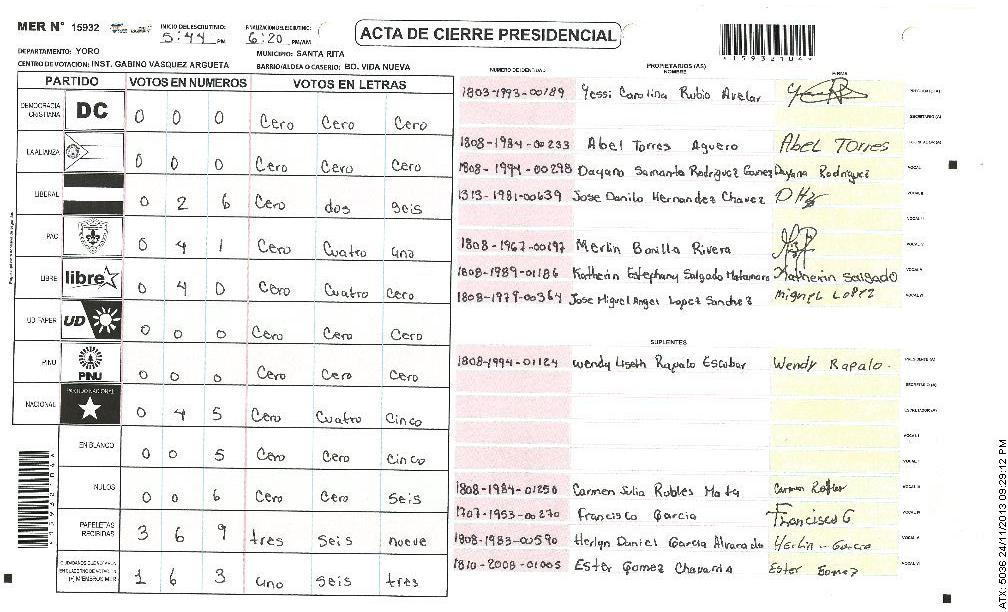 MER N° 15932
INICIO DEL ESCRUTINIO: 5:44 PM
FINALIZACION DEL ESCRUTINIO: 6:20 PM/AM
ACTA DE CIERRE PRESIDENCIAL
*15932104*
DEPARTAMENTO: YORO
MUNICIPIO: SANTA RITA
CENTRO DE VOTACION: INST. GABINO VASQUEZ ARGUETA
BARRIO/ALDEA O CASERIO: BO. VIDA NUEVA
PARTIDO VOTOS EN NUMEROS VOTOS EN LETRAS
DEMOCRACIA CRISTIANA DC 0 0 0 Cero Cero Cero
LA ALIANZA 0 0 0 Cero Cero Cero
LIBERAL 0 2 6 Cero dos seis
PAC 0 4 1 Cero Cuatro uno
LIBRE libre 0 4 0 Cero Cuatro Cero
UD FAPER UD 0 0 0 Cero Cero Cero
PINU PINU 0 0 0 Cero Cero Cero
NACIONAL PARTIDO NACIONAL 0 4 5 Cero Cuatro Cinco
EN BLANCO 0 0 5 Cero Cero Cinco
NULOS 0 0 6 Cero Cero Seis
PAPELETAS RECIBIDAS 3 6 9 tres seis nueve
(+) MIEMBROS MER 1 6 3 uno seis tres
NUMERO DE IDENTIDAD PROPIETARIOS (AS) NOMBRE FIRMA
1803-1993-00189 Yessi Carolina Rubio Avelar PRESIDENTE (A)
SECRETARIO (A)
1808-1984-00233 Abel Torres Aguero Abel Torres ESCRUTADOR (A)
1808-1994-00298 Dayana Samanta Rodriguez Gomez Dayana Rodriguez VOCAL I
1313-1981-00639 Jose Danilo Hernandez Chavez VOCAL II
VOCAL III
1808-1967-00197 Merlin Bonilla Rivera VOCAL IV
1808-1989-01186 Katherin Estephany Salgado Matamoro Katherin Salgado VOCAL V
1808-1979-00364 Jose Miguel Angel Lopez Sanchez Miguel Lopez VOCAL VI
SUPLENTES
1808-1994-01124 Wendy Liseth Rapalo Escobar Wendy Rapalo. PRESIDENTE (A)
SECRETARIO (A)
ESCRUTADOR (A)
VOCAL I
VOCAL II
1808-1984-01250 Carmen Julia Robles Mata Carmen Robles VOCAL III
1707-1953-00270 Francisco Garcia Francisco G VOCAL IV
1808-1983-00590 Herlyn Daniel Garcia Alvarado Herlin Garcia VOCAL V
1810-2008-01005 Ester Gomez Chavarria Ester Gomez VOCAL VI
ATX: 5036 24/11/2013 09:29:12 PM